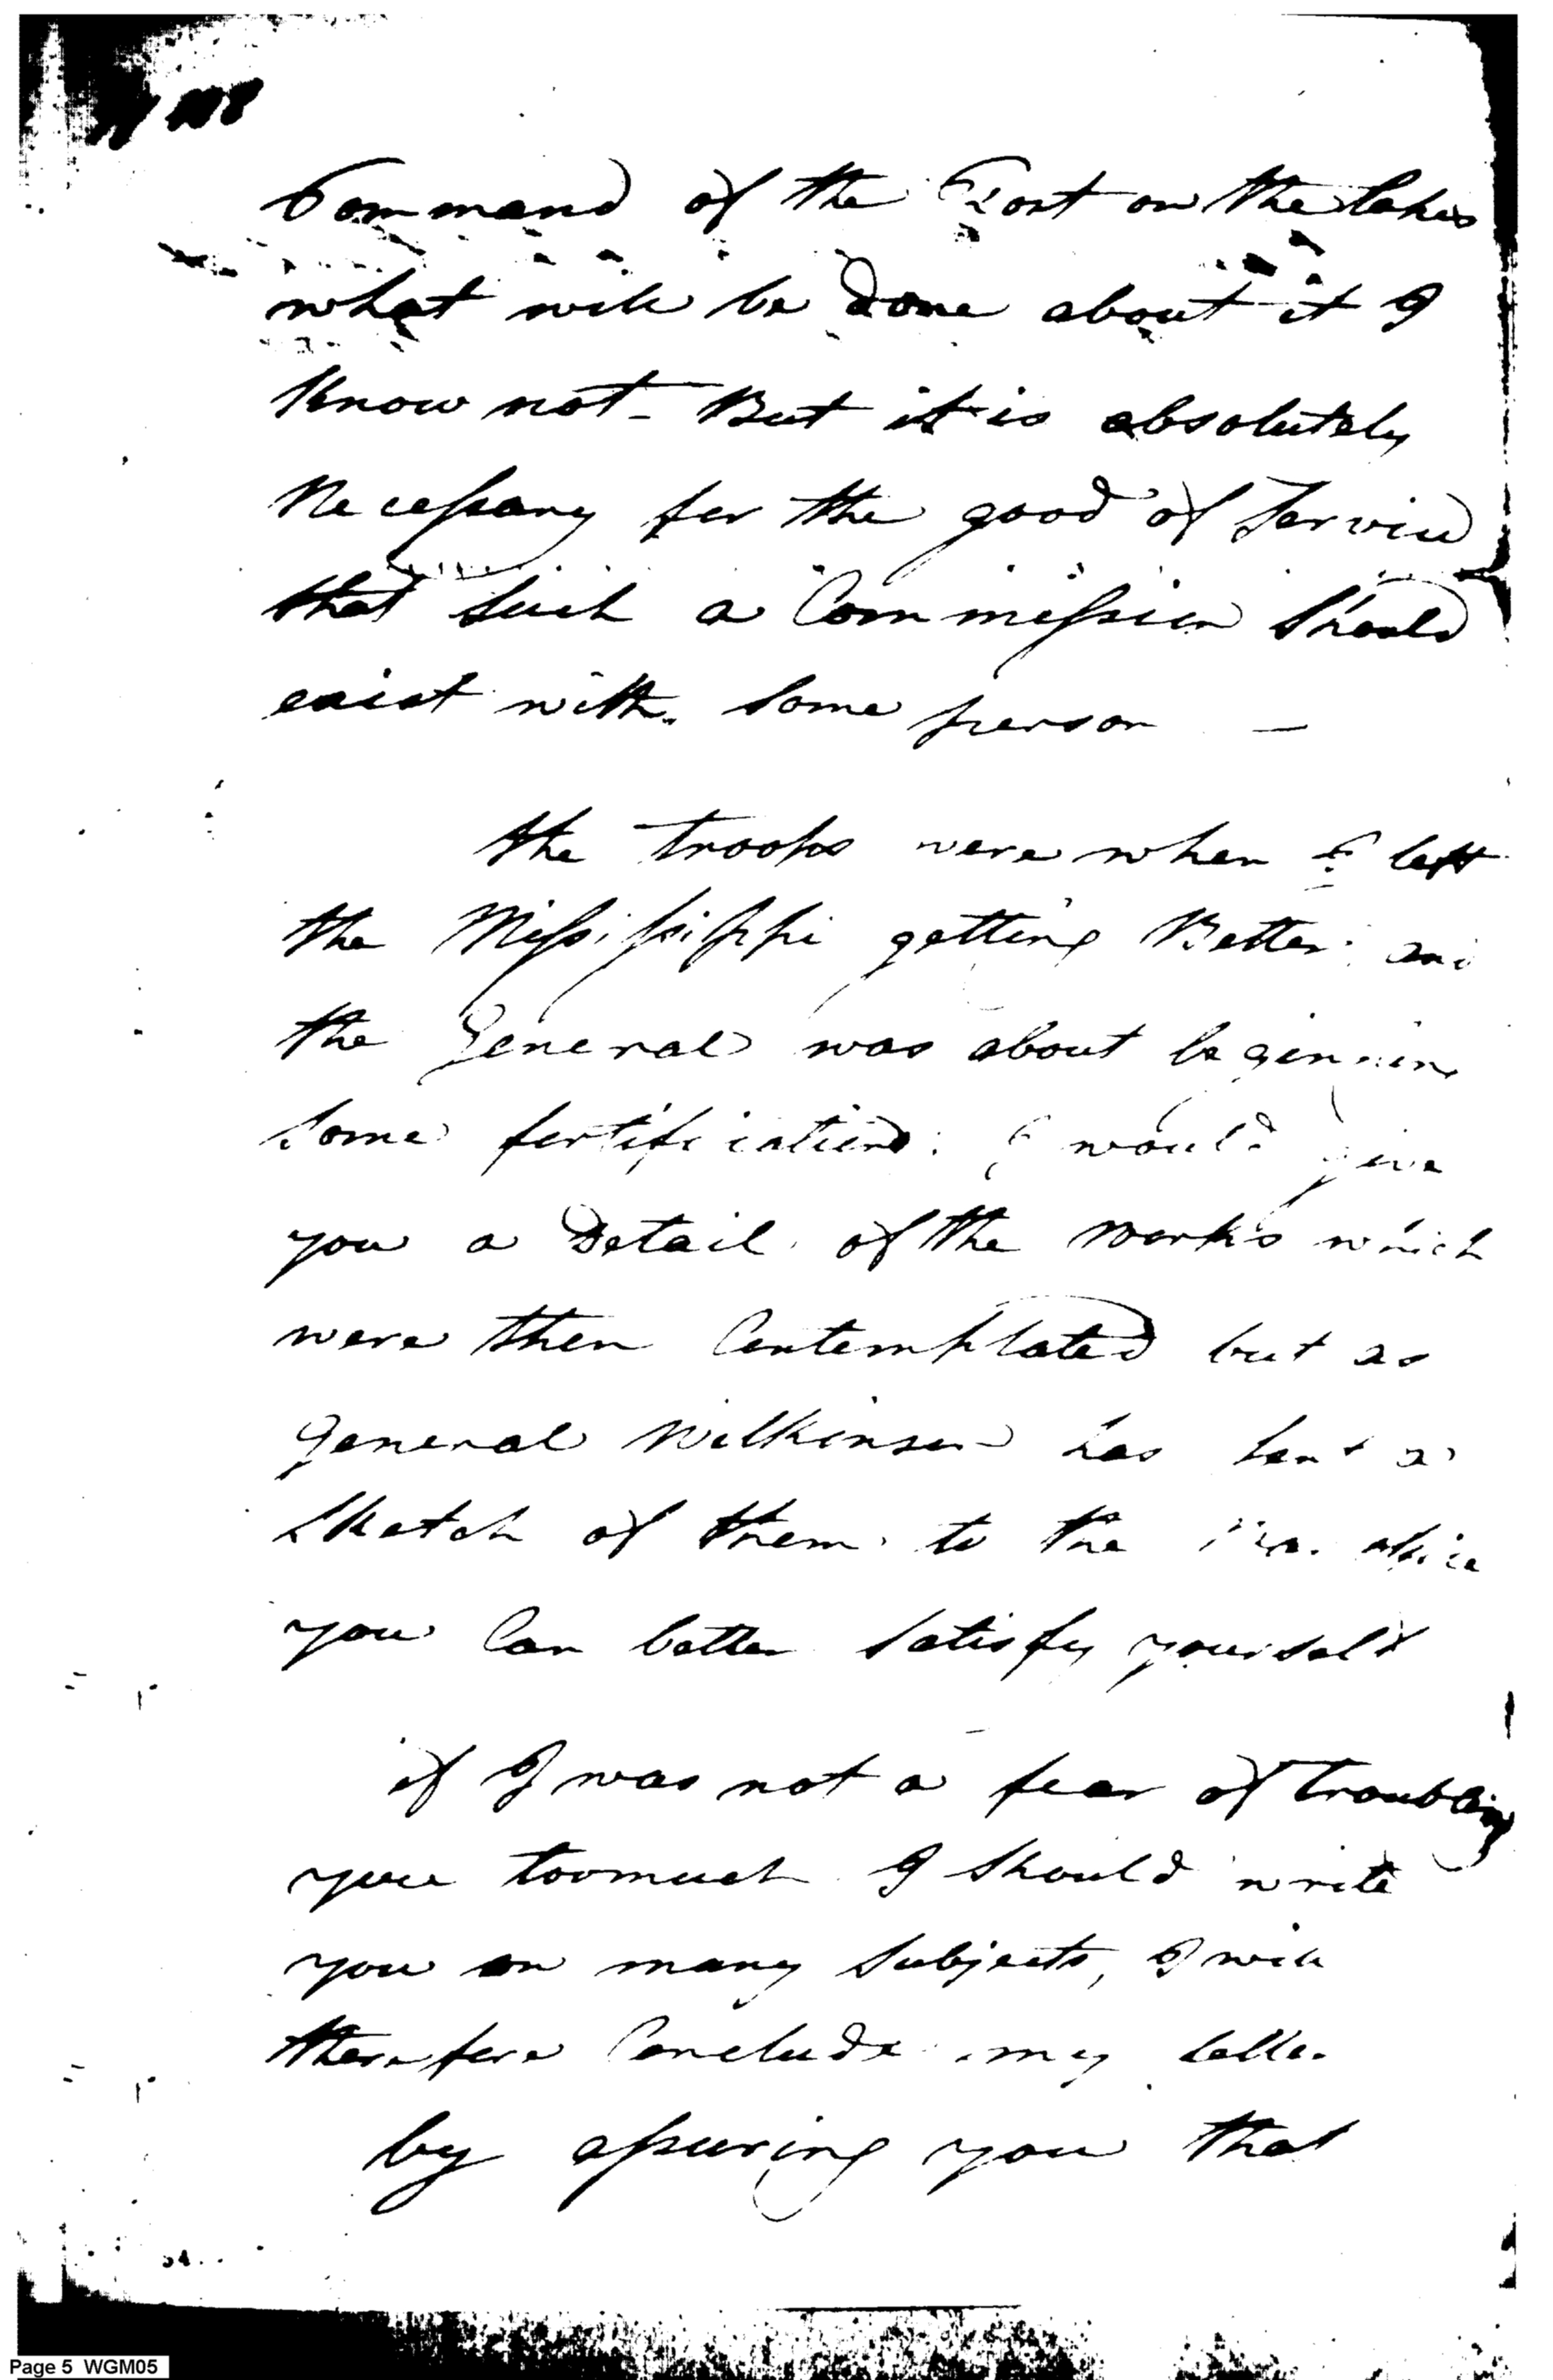 Command of the Post on the Lakes
what will be done about it I
Know not - But it is absolutely
Necessary for the good of Service
that Such a Commission Should
exist with Some person —
the troops were when I left
the Mississippi getting Better and
the General was about beginning
Some fortifications. I would give
you a Detail of the works which
were then Contemplated but as
General Wilkinson has Sent a
Sketch of them to the War office
you Can better Satisfy yourself
if I was not a fear of troubling
you toomuch I Should write
you on many Subjects, I will
therefore Conclude my letter
by assuring you that
54
Page 5 WGM05